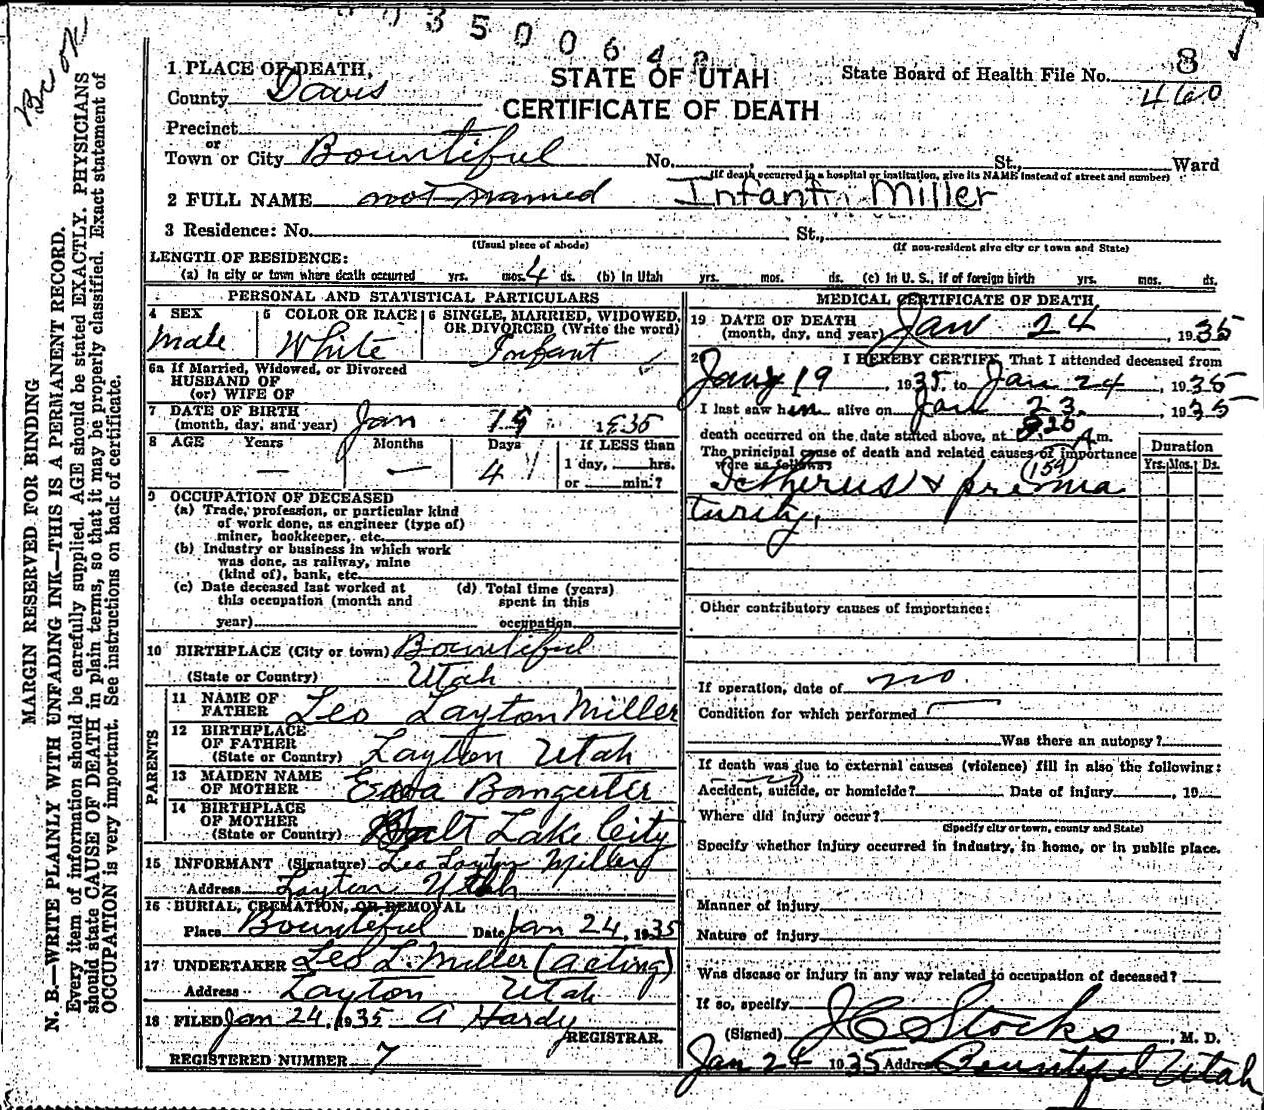 3500642
Be ok
8
460
STATE OF UTAH
CERTIFICATE OF DEATH
State Board of Health File No.
1 PLACE OF DEATH,
County Davis
Precinct
or
Town or City Bountiful No. , St., Ward
(If death occurred in a hospital or institution, give its NAME instead of street and number)
2 FULL NAME not named Infant Miller
3 Residence: No. St.,
(Usual place of abode) (If non-resident give city or town and State)
LENGTH OF RESIDENCE:
(a) In city or town where death occurred yrs. mos. 4 ds. (b) In Utah yrs. mos. ds. (c) In U. S., if of foreign birth yrs. mos. ds.
PERSONAL AND STATISTICAL PARTICULARS
4 SEX Male
5 COLOR OR RACE White
6 SINGLE, MARRIED, WIDOWED, OR DIVORCED (Write the word) Infant
6a If Married, Widowed, or Divorced
HUSBAND OF
(or) WIFE OF
7 DATE OF BIRTH
(month, day, and year) Jan 1935
8 AGE Years — Months — Days 4 If LESS than
1 day, hrs.
or min.?
9 OCCUPATION OF DECEASED
(a) Trade, profession, or particular kind
of work done, as engineer (type of)
miner, bookkeeper, etc.
(b) Industry or business in which work
was done, as railway, mine
(kind of), bank, etc.
(c) Date deceased last worked at
this occupation (month and
year)
(d) Total time (years)
spent in this
occupation
10 BIRTHPLACE (City or town) Bountiful
(State or Country) Utah
PARENTS
11 NAME OF
FATHER Leo Layton Miller
12 BIRTHPLACE
OF FATHER
(State or Country) Layton Utah
13 MAIDEN NAME
OF MOTHER Bangerter
14 BIRTHPLACE
OF MOTHER
(State or Country) Salt Lake City
15 INFORMANT (Signature) Leo Layton Miller
Address Layton Utah
16 BURIAL, CREMATION, OR REMOVAL
Place Bountiful Date Jan 24, 1935
17 UNDERTAKER Leo L. Miller (acting)
Address Layton Utah
18 FILED Jan 24, 1935 A Hardy
REGISTRAR.
REGISTERED NUMBER 7
MEDICAL CERTIFICATE OF DEATH
19 DATE OF DEATH
(month, day, and year) Jan 24, 1935
20 I HEREBY CERTIFY, That I attended deceased from
Jany 19, 1935, to Jan 24, 1935
I last saw him alive on Jan 23, 1935
death occurred on the date stated above, at A m.
The principal cause of death and related causes of importance
were as follows:
Duration
Yrs. Mos. Ds.
(159)
Ictherus & prema
turity,
Other contributory causes of importance:
If operation, date of no
Condition for which performed
Was there an autopsy?
If death was due to external causes (violence) fill in also the following:
no
Accident, suicide, or homicide? Date of injury , 19
Where did injury occur?
(Specify city or town, county and State)
Specify whether injury occurred in industry, in home, or in public place.
Manner of injury
Nature of injury
Was disease or injury in any way related to occupation of deceased?
If so, specify
(Signed) J C Stocks, M. D.
Jan 24 1935 Address Bountiful Utah
MARGIN RESERVED FOR BINDING
N. B.—WRITE PLAINLY WITH UNFADING INK—THIS IS A PERMANENT RECORD.
Every item of information should be carefully supplied. AGE should be stated EXACTLY. PHYSICIANS
should state CAUSE OF DEATH in plain terms, so that it may be properly classified. Exact statement of
OCCUPATION is very important. See instructions on back of certificate.